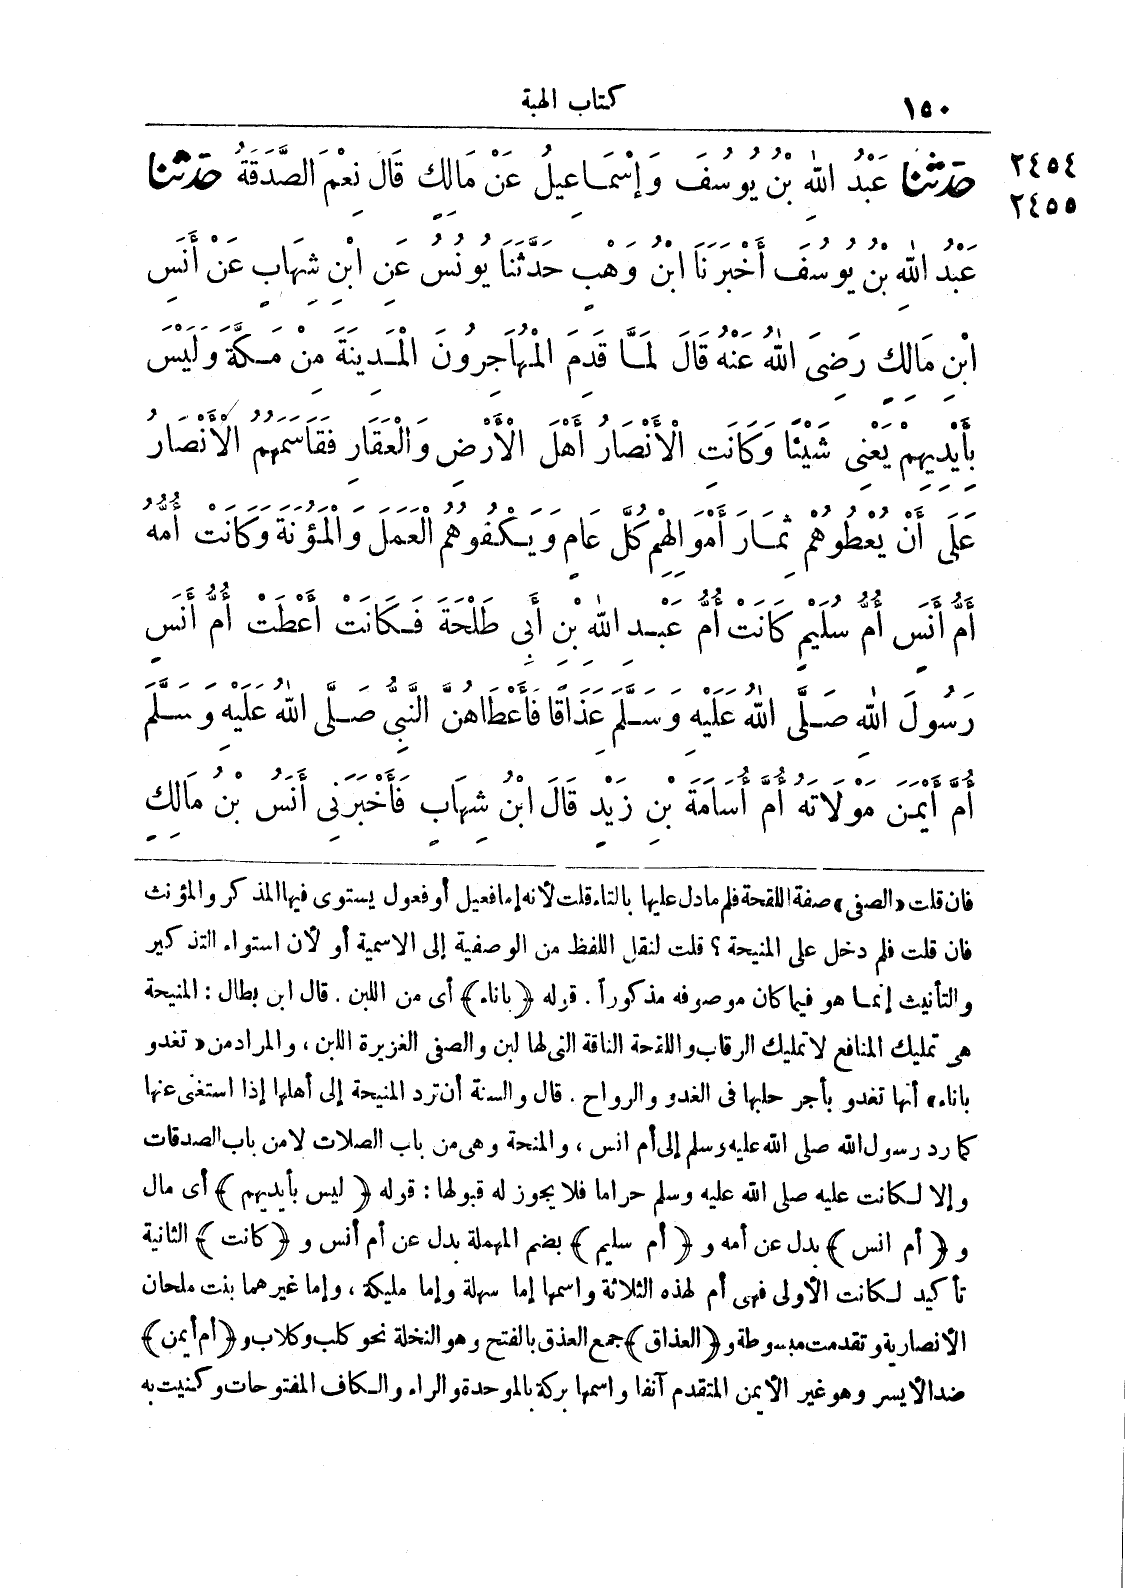 ١٥٠
كتاب الهبة
٢٤٥٤
٢٤٥٥
حَدَّثَنَا عَبْدُ اللهِ بْنُ يُوسُفَ وَإِسْمَاعِيلُ عَنْ مَالِكٍ قَالَ نِعْمَ الصَّدَقَةُ حَدَّثَنَا
عَبْدُ اللهِ بْنُ يُوسُفَ أَخْبَرَنَا ابْنُ وَهْبٍ حَدَّثَنَا يُونُسُ عَنِ ابْنِ شِهَابٍ عَنْ أَنَسِ
ابْنِ مَالِكٍ رَضِىَ اللهُ عَنْهُ قَالَ لَمَّا قَدِمَ الْمُهَاجِرُونَ الْمَدِينَةَ مِنْ مَكَّةَ وَلَيْسَ
بِأَيْدِيهِمْ يَعْنِى شَيْئًا وَكَانَتِ الْأَنْصَارُ أَهْلَ الْأَرْضِ وَالْعَقَارِ فَقَاسَمَهُمُ الْأَنْصَارُ
عَلَى أَنْ يُعْطُوهُمْ ثِمَارَ أَمْوَالِهِمْ كُلَّ عَامٍ وَيَكْفُوهُمُ الْعَمَلَ وَالْمَؤُنَةَ وَكَانَتْ أُمُّهُ
أُمُّ أَنَسٍ أُمُّ سُلَيْمٍ كَانَتْ أُمَّ عَبْدِ اللهِ بْنِ أَبِى طَلْحَةَ فَكَانَتْ أَعْطَتْ أُمُّ أَنَسٍ
رَسُولَ اللهِ صَلَّى اللهُ عَلَيْهِ وَسَلَّمَ عِذَاقًا فَأَعْطَاهُنَّ النَّبِىُّ صَلَّى اللهُ عَلَيْهِ وَسَلَّمَ
أُمَّ أَيْمَنَ مَوْلَاتَهُ أُمَّ أُسَامَةَ بْنِ زَيْدٍ قَالَ ابْنُ شِهَابٍ فَأَخْبَرَنِى أَنَسُ بْنُ مَالِكٍ
فان قلت «الصفى» صفة اللقحة فلم مادل عليها بالتاء قلت لأنه إما فعيل أو فعول يستوى فيها المذكر والمؤنث
فان قلت فلم دخل على المنيحة ؟ قلت لنقل اللفظ من الوصفية إلى الاسمية أو لأن استواء التذكير
والتأنيث إنما هو فيما كان موصوفه مذكوراً . قوله ﴿باناء﴾ أى من اللبن . قال ابن بطال : المنيحة
هى تمليك المنافع لا تمليك الرقاب واللقحة الناقة التى لها لبن والصفى الغزيرة اللبن ، والمراد من «تغدو
باناء» أنها تغدو بأجر حلبها فى الغدو والرواح . قال والسنة أن ترد المنيحة إلى أهلها إذا استغنى عنها
كما رد رسول الله صلى الله عليه وسلم إلى أم انس ، والمنحة وهى من باب الصلات لا من باب الصدقات
وإلا لكانت عليه صلى الله عليه وسلم حراما فلا يجوز له قبولها : قوله ﴿ليس بأيديهم﴾ أى مال
و ﴿أم انس﴾ بدل عن أمه و ﴿أم سليم﴾ بضم المهملة بدل عن أم أنس و ﴿كانت﴾ الثانية
تأكيد لكانت الأولى فهى أم لهذه الثلاثة واسمها إما سهلة وإما مليكة ، وإما غيرهما بنت ملحان
الأنصارية وتقدمت مبسوطة و﴿العذاق﴾ جمع العذق بالفتح وهو النخلة نحو كلب وكلاب و﴿أم أيمن﴾
ضد الأيسر وهو غير الأيمن المتقدم آنفا واسمها بركة بالموحدة والراء والكاف المفتوحات وكنيت به